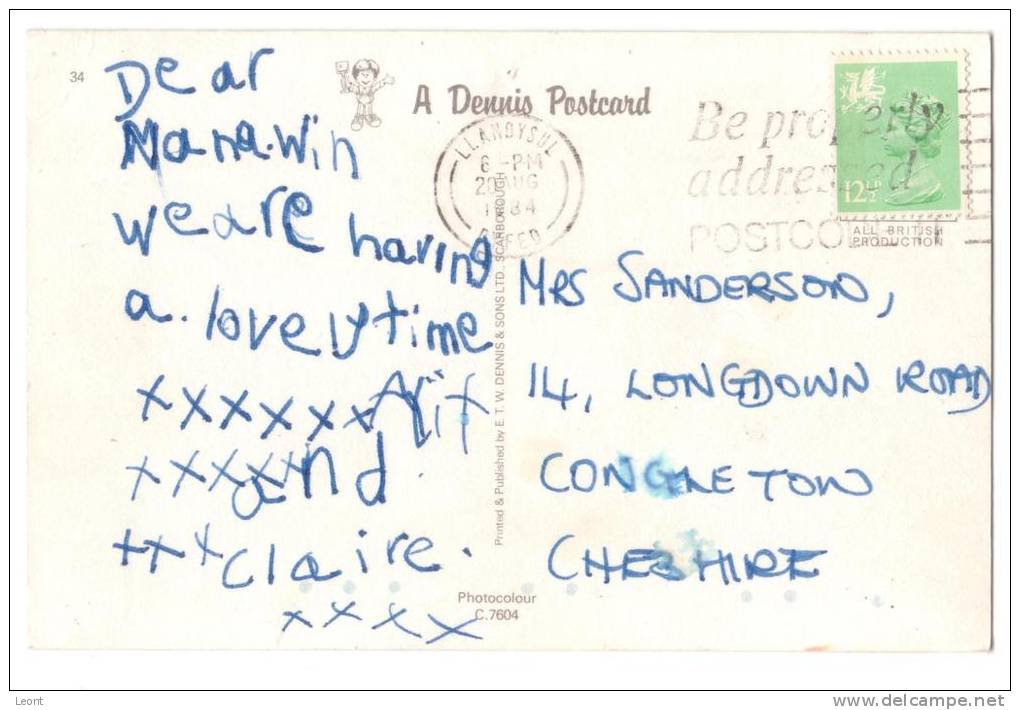 34
Dear
Nana.Win
we are having
a. lovely time
xxxxxx
xxxxx and
+++ Claire.
xxxx
A Dennis Postcard
LLANDYSUL
6 -PM
20 AUG
1984
DYFED
Be properly
addressed
POSTCODE IT
12½P
ALL BRITISH
PRODUCTION
Printed & Published by E. T. W. DENNIS & SONS LTD., SCARBOROUGH
MRS SANDERSON,
14, LONGDOWN ROAD
CONGLETON
CHESHIRE
Photocolour
C.7604
Leont
www.delcampe.net